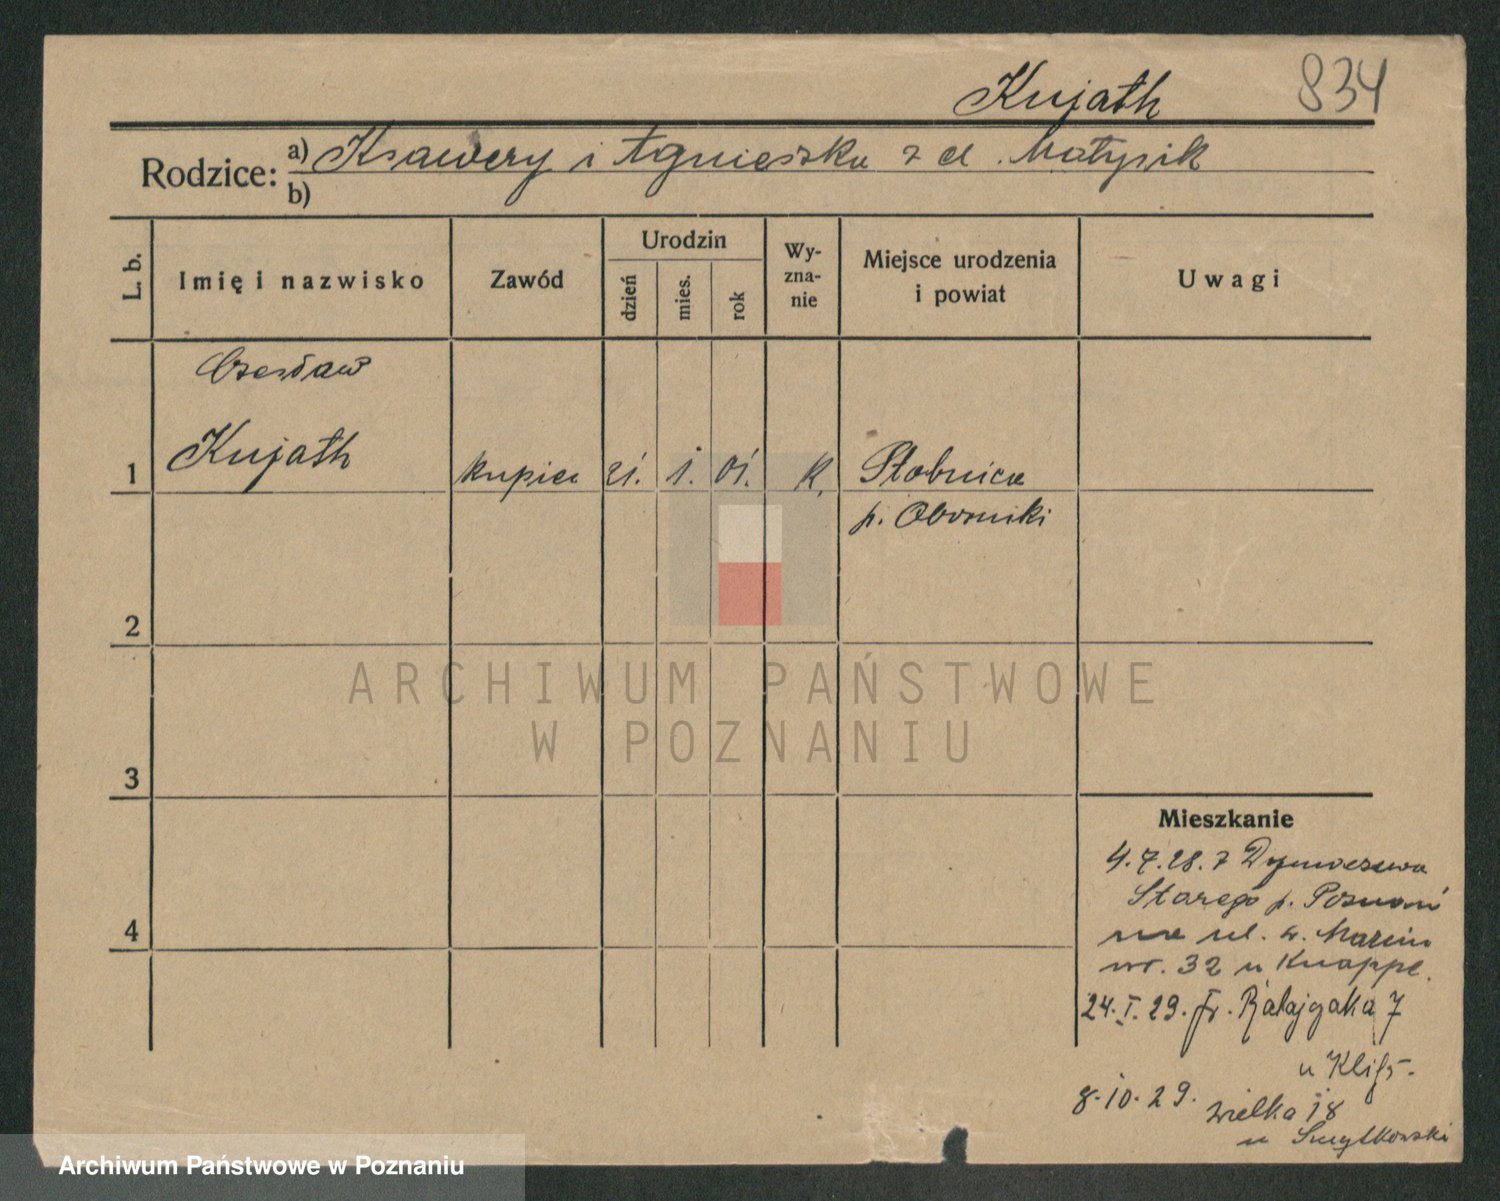 Kujath 834
Rodzice: a) Ksawery i Agnieszka z d. Matysik
b)
L. b. Imię i nazwisko Zawód Urodzin dzień mies. rok Wyznanie Miejsce urodzenia i powiat Uwagi
Czesław
1 Kujath kupiec 21. 1. 01. k. Słobnica
p. Oborniki
2
ARCHIWUM PAŃSTWOWE
W POZNANIU
3
Mieszkanie
4.7.28. z
Starego p. Poznań
4 na ul. św. Marcin
nr. 32 u Knappe.
24.I.29. Fr. Ratajczaka 7
u
8.10.29. Wielka 18
u Smytkowski
Archiwum Państwowe w Poznaniu